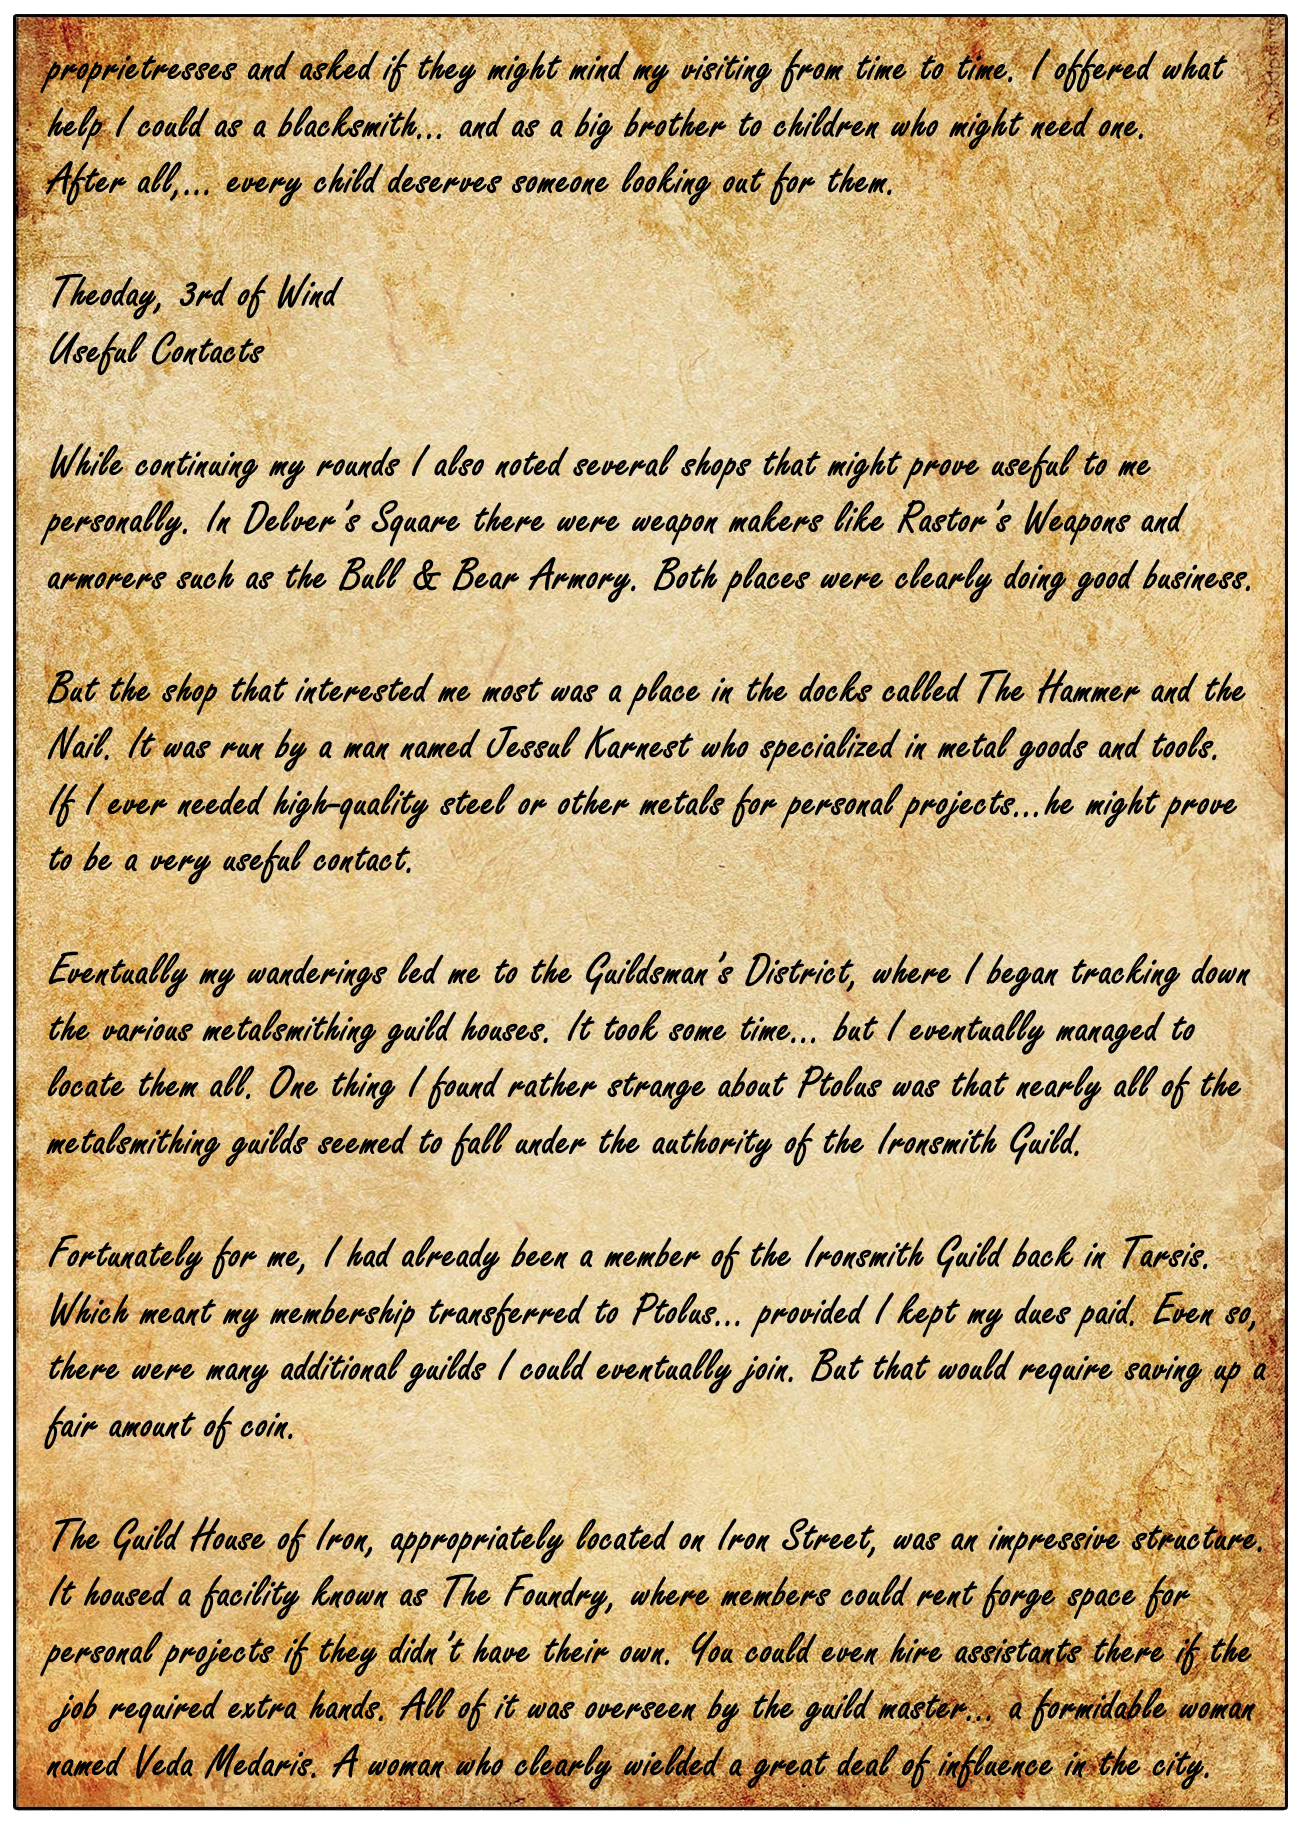 proprietresses and asked if they might mind my visiting from time to time. I offered what
help I could as a blacksmith... and as a big brother to children who might need one.
After all,... every child deserves someone looking out for them.
Theoday, 3rd of Wind
Useful Contacts
While continuing my rounds I also noted several shops that might prove useful to me
personally. In Delver's Square there were weapon makers like Rastor's Weapons and
armorers such as the Bull & Bear Armory. Both places were clearly doing good business.
But the shop that interested me most was a place in the docks called The Hammer and the
Nail. It was run by a man named Jessul Karnest who specialized in metal goods and tools.
If I ever needed high-quality steel or other metals for personal projects...he might prove
to be a very useful contact.
Eventually my wanderings led me to the Guildsman's District, where I began tracking down
the various metalsmithing guild houses. It took some time... but I eventually managed to
locate them all. One thing I found rather strange about Ptolus was that nearly all of the
metalsmithing guilds seemed to fall under the authority of the Ironsmith Guild.
Fortunately for me, I had already been a member of the Ironsmith Guild back in Tarsis.
Which meant my membership transferred to Ptolus... provided I kept my dues paid. Even so,
there were many additional guilds I could eventually join. But that would require saving up a
fair amount of coin.
The Guild House of Iron, appropriately located on Iron Street, was an impressive structure.
It housed a facility known as The Foundry, where members could rent forge space for
personal projects if they didn't have their own. You could even hire assistants there if the
job required extra hands. All of it was overseen by the guild master... a formidable woman
named Veda Medaris. A woman who clearly wielded a great deal of influence in the city.